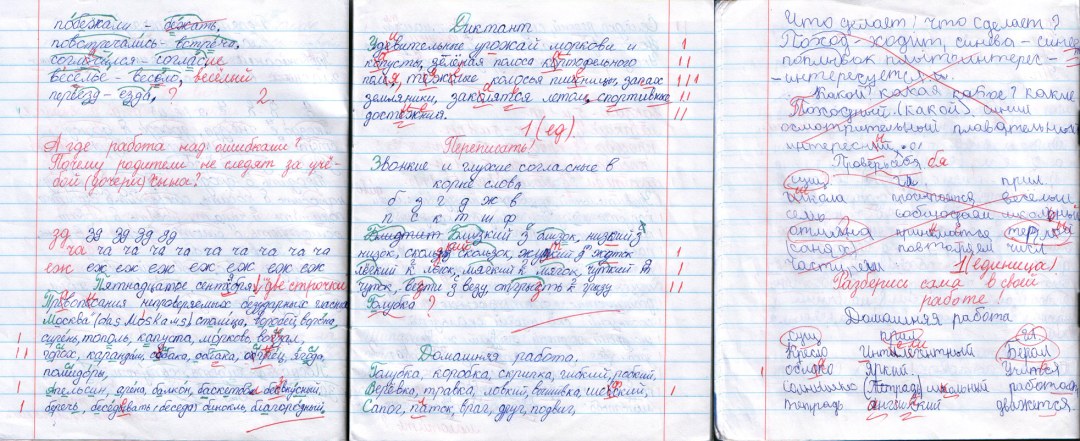 побежали - бежать,
повстречались - встреча,
согласился - согласие
веселье - весело, веселий
переезд - езда, ? 2
А где работа над ошибками?
Почему родители не следят за учё-
бой (дочери) сына?
зд зд зд зд зд
ча ча ча ча ча ча ча ча ча ча
еж еж еж еж еж еж еж еж
Пятнадцатое сентября две строчки
Правописания непроверяемых безударных гласных
Москва (das Moskaws) столица, воробей, ворона,
сирень, тополь, капуста, морковь, вокзал,
горох, карандаш, собака, облака, огурец, ягода,
помидоры,
Апельсин, арена, балкон, баскетбол,
беречь, беседовать (беседа) бинокль, благородный,
Диктант
Удевительне урожай моркови и
капусты, зелёная полоса картофельного
поля, тяжолие колосья пшеницы, запах
земляники, закалятся летом, спортивные
достежния.
1 (ед).
Переписать!
Звонкие и глухие согласные в
корне слова
б з г д ж в
п с к т ш ф
близкий з близок, низкий з
низок, скользкий скользок, жидкий д жидок
лёгкий к лёгок, мягкий к мягок, чуткий
чуток, везти з везу, отгрызть к грызу
Глубка ?
Домашняя работа.
Голубка, коробка, скрипка, гибкий, робкий,
Верёвка, травка, ловкий, вышивка,
Сапог, паток, враг, друг, подвиг,
Что делает? что сделает?
Поход - ходит, синева - синеет
поплывок плыть интерес -
- интересуется.
Какой? какая какое? какие
Походный (какой), синий
осмотрительный плавательный
интересный.
Проверь себя
сущ гл. прил.
школа построится весёлый
семь соблюдаем школьный
отметка принимается
повторяем
части речи 1 (единица)
Разберись сама в своей
работе!
Домашняя работа
Сущ прил гл.
Кресло Интилегентный
Яркий Учиться
(Тетрадь) школьный работать
тетрадь английский движется.